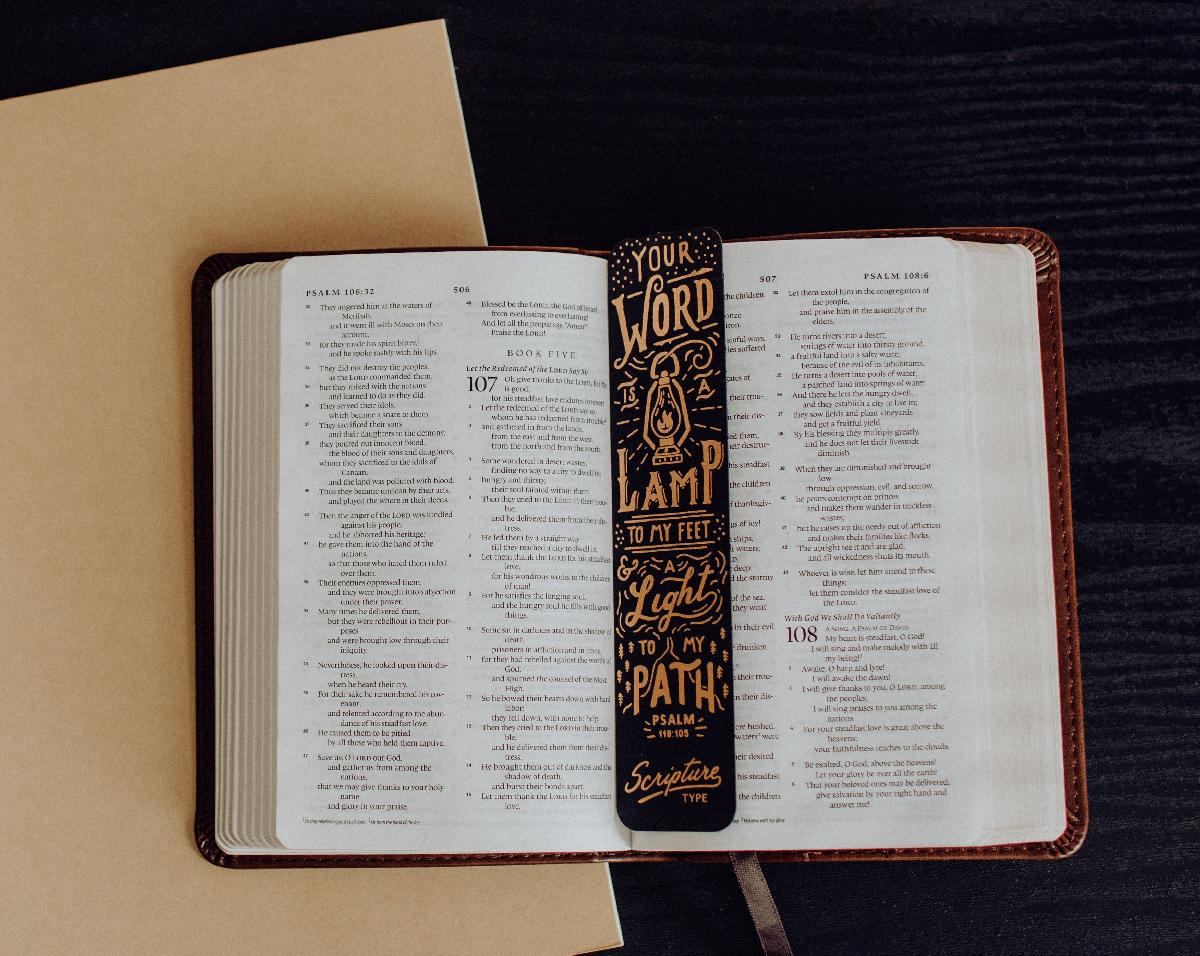 PSALM 106:32
506
32 They angered him at the waters of
Meribah,
and it went ill with Moses on their
account,
33 for they made his spirit bitter,
and he spoke rashly with his lips.
34 They did not destroy the peoples,
as the LORD commanded them,
35 but they mixed with the nations
and learned to do as they did.
36 They served their idols,
which became a snare to them.
37 They sacrificed their sons
and their daughters to the demons;
38 they poured out innocent blood,
the blood of their sons and daughters,
whom they sacrificed to the idols of
Canaan,
and the land was polluted with blood.
39 Thus they became unclean by their acts,
and played the whore in their deeds.
40 Then the anger of the LORD was kindled
against his people,
and he abhorred his heritage;
41 he gave them into the hand of the
nations,
so that those who hated them ruled
over them.
42 Their enemies oppressed them,
and they were brought into subjection
under their power.
43 Many times he delivered them,
but they were rebellious in their pur-
poses
and were brought low through their
iniquity.
44 Nevertheless, he looked upon their dis-
tress,
when he heard their cry.
45 For their sake he remembered his cov-
enant,
and relented according to the abun-
dance of his steadfast love.
46 He caused them to be pitied
by all those who held them captive.
47 Save us, O LORD our God,
and gather us from among the
nations,
that we may give thanks to your holy
name
and glory in your praise.
48 Blessed be the LORD, the God of Israel,
from everlasting to everlasting!
And let all the people say, "Amen!"
Praise the LORD!
BOOK FIVE
Let the Redeemed of the LORD Say So
107 Oh give thanks to the LORD, for he
is good,
for his steadfast love endures forever!
2 Let the redeemed of the LORD say so,
whom he has redeemed from trouble
3 and gathered in from the lands,
from the east and from the west,
from the north and from the south.
4 Some wandered in desert wastes,
finding no way to a city to dwell in;
5 hungry and thirsty,
their soul fainted within them.
6 Then they cried to the LORD in their trou-
ble,
and he delivered them from their dis-
tress.
7 He led them by a straight way
till they reached a city to dwell in.
8 Let them thank the LORD for his steadfast
love,
for his wondrous works to the children
of man!
9 For he satisfies the longing soul,
and the hungry soul he fills with good
things.
10 Some sat in darkness and in the shadow of
death,
prisoners in affliction and in irons,
11 for they had rebelled against the words of
God,
and spurned the counsel of the Most
High.
12 So he bowed their hearts down with hard
labor;
they fell down, with none to help.
13 Then they cried to the LORD in their trou-
ble,
and he delivered them from their dis-
tress.
14 He brought them out of darkness and the
shadow of death,
and burst their bonds apart.
15 Let them thank the LORD for his steadfast
love,
YOUR
WORD
IS A
LAMP
TO MY FEET
& A
Light
TO MY
PATH
PSALM
119:105
Scripture
TYPE
507
PSALM 108:6
the children
iron.
sinful ways,
suffered
their trou-
their dis-
them,
their destruc-
his steadfast
the children
thanksgiv-
of joy!
ships,
waters;
deep.
the stormy
of the sea.
they went
in their evil
drunken
their trou-
their dis-
were hushed.
waters were
their desired
his steadfast
the children
32 Let them extol him in the congregation of
the people,
and praise him in the assembly of the
elders.
33 He turns rivers into a desert,
springs of water into thirsty ground,
34 a fruitful land into a salty waste,
because of the evil of its inhabitants.
35 He turns a desert into pools of water,
a parched land into springs of water.
36 And there he lets the hungry dwell,
and they establish a city to live in;
37 they sow fields and plant vineyards
and get a fruitful yield.
38 By his blessing they multiply greatly,
and he does not let their livestock
diminish.
39 When they are diminished and brought
low
through oppression, evil, and sorrow,
40 he pours contempt on princes
and makes them wander in trackless
wastes;
41 but he raises up the needy out of affliction
and makes their families like flocks.
42 The upright see it and are glad,
and all wickedness shuts its mouth.
43 Whoever is wise, let him attend to these
things;
let them consider the steadfast love of
the LORD.
With God We Shall Do Valiantly
108 A SONG. A PSALM OF DAVID.
My heart is steadfast, O God!
I will sing and make melody with all
my being!
2 Awake, O harp and lyre!
I will awake the dawn!
3 I will give thanks to you, O LORD, among
the peoples;
I will sing praises to you among the
nations.
4 For your steadfast love is great above the
heavens;
your faithfulness reaches to the clouds.
5 Be exalted, O God, above the heavens!
Let your glory be over all the earth!
6 That your beloved ones may be delivered,
give salvation by your right hand and
answer me!